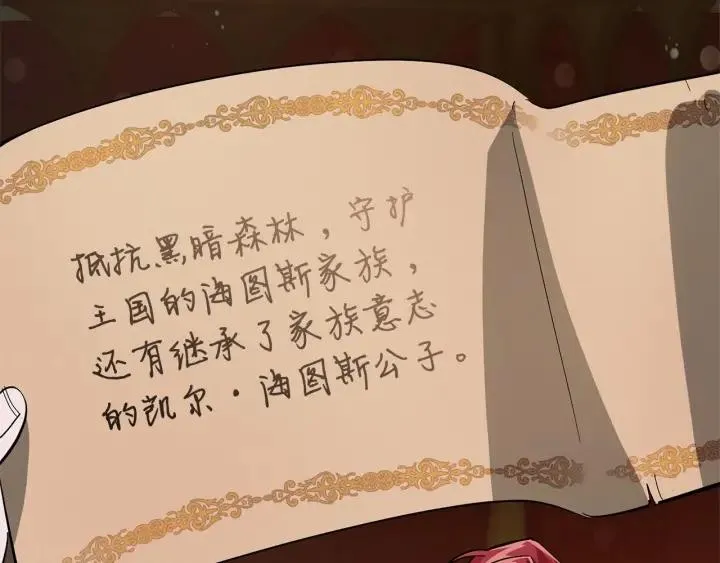 抵抗黑暗森林，守护
王国的海图斯家族，
还有继承了家族意志
的凯尔·海图斯公子。